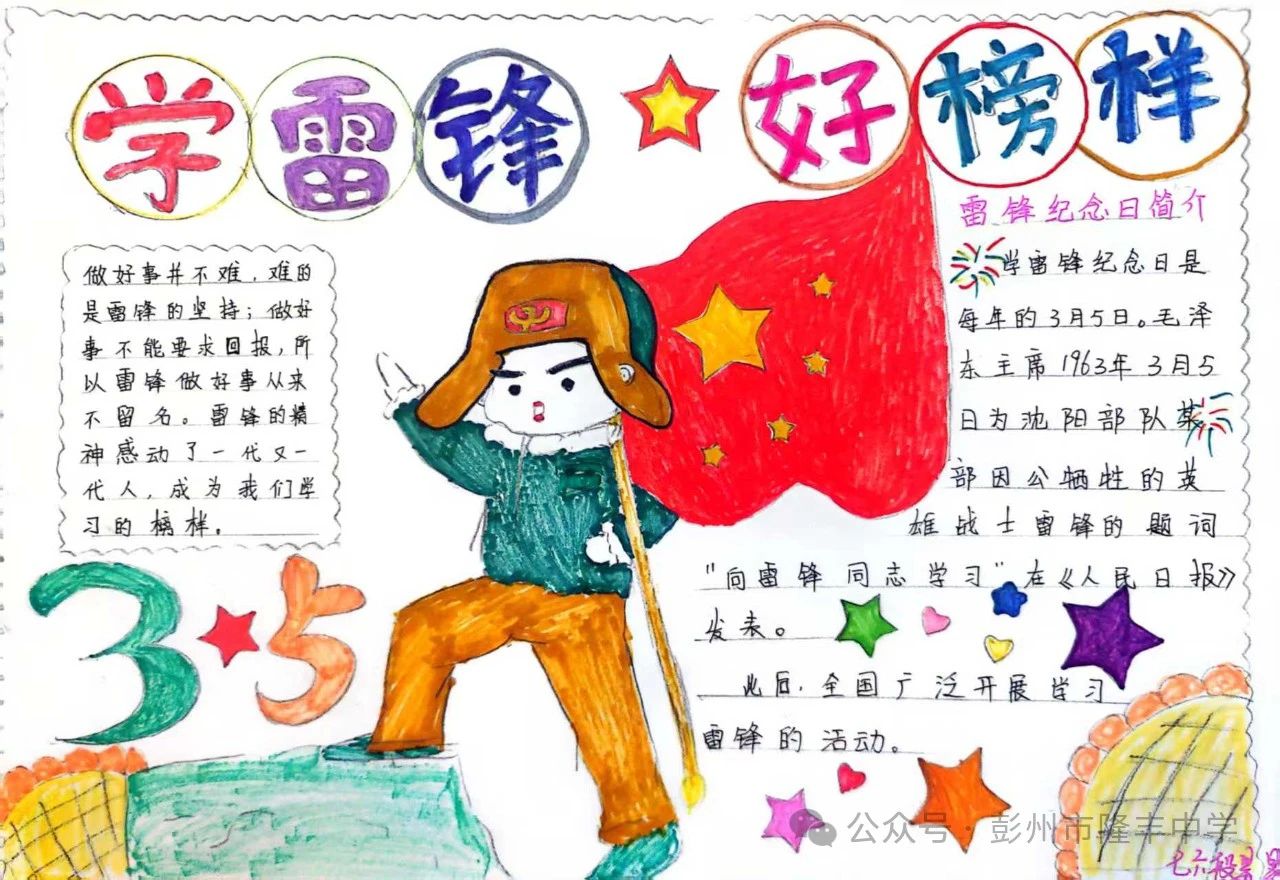 学雷锋 好榜样
做好事并不难,难的
是雷锋的坚持;做好
事不能要求回报,所
以雷锋做好事从来
不留名。雷锋的精
神感动了一代又一
代人,成为我们学
习的榜样。
3·5
雷锋纪念日简介
学雷锋纪念日是
每年的3月5日。毛泽
东主席1963年3月5
日为沈阳部队某
部因公牺牲的英
雄战士雷锋的题词
"向雷锋同志学习"在《人民日报》
发表。
此后,全国广泛开展学习
雷锋的活动。
公众号·彭州市隆丰中学
七六